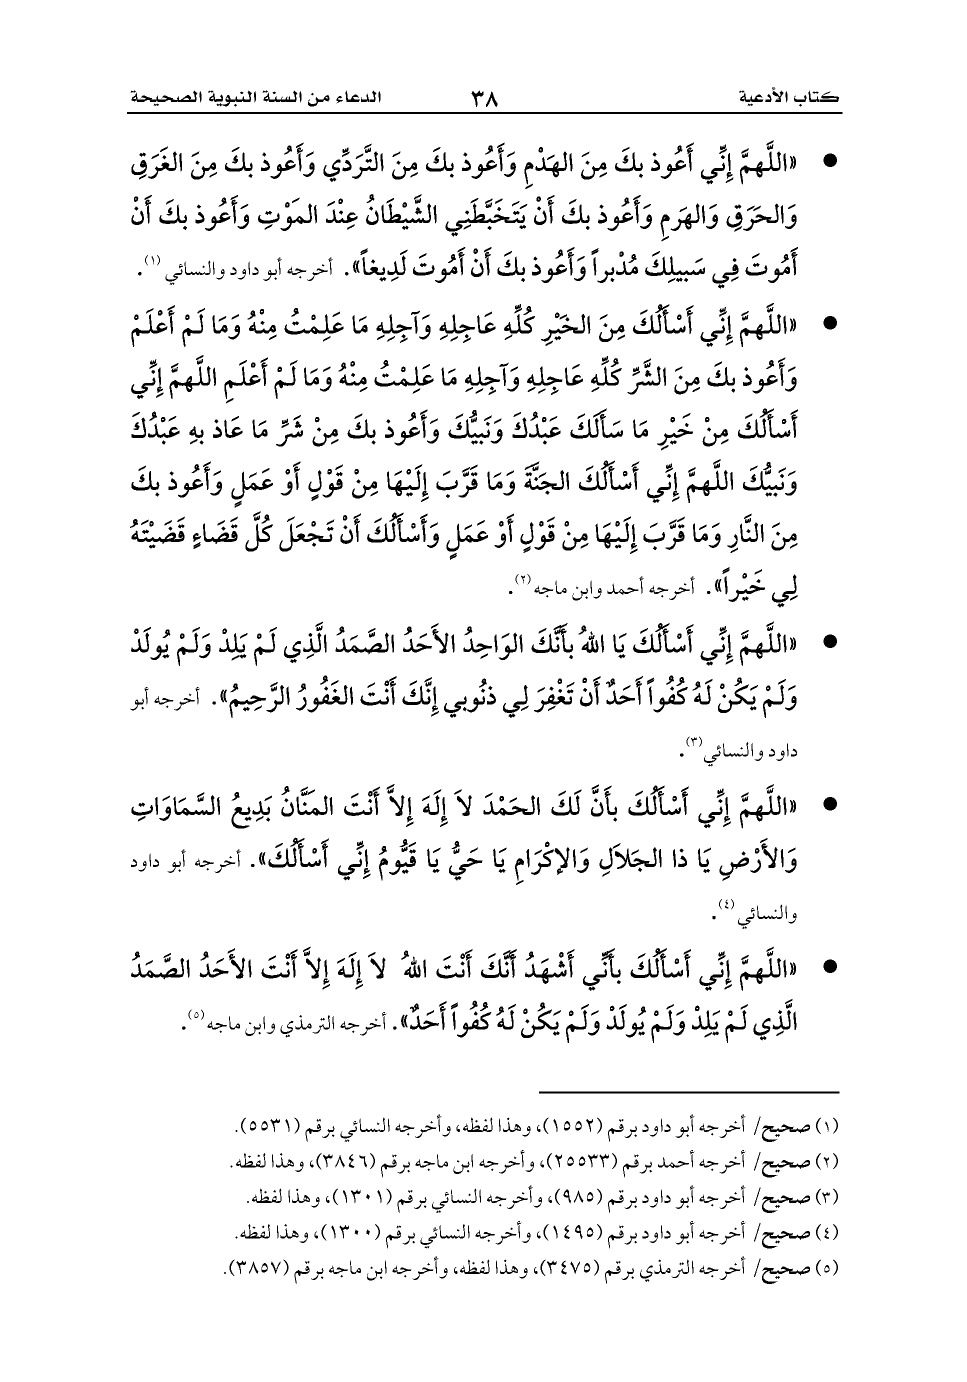 كتاب الأدعية ٣٨ الدعاء من السنة النبوية الصحيحة
● «اللَّهمَّ إِنِّي أَعُوذ بكَ مِنَ الهَدْمِ وَأَعُوذ بكَ مِنَ التَّرَدِّي وَأَعُوذ بكَ مِنَ الغَرَقِ
وَالحَرَقِ وَالهَرَمِ وَأَعُوذ بكَ أَنْ يَتَخَبَّطَنِي الشَّيْطَانُ عِنْدَ المَوْتِ وَأَعُوذ بكَ أَنْ
أَمُوتَ فِي سَبيلِكَ مُدْبراً وَأَعُوذ بكَ أَنْ أَمُوتَ لَدِيغاً». أخرجه أبو داود والنسائي (١).
● «اللَّهمَّ إِنِّي أَسْأَلُكَ مِنَ الخَيْرِ كُلِّهِ عَاجِلِهِ وَآجِلِهِ مَا عَلِمْتُ مِنْهُ وَمَا لَمْ أَعْلَمْ
وَأَعُوذ بكَ مِنَ الشَّرِّ كُلِّهِ عَاجِلِهِ وَآجِلِهِ مَا عَلِمْتُ مِنْهُ وَمَا لَمْ أَعْلَمِ اللهمَّ إِنِّي
أَسْأَلُكَ مِنْ خَيْرِ مَا سَأَلَكَ عَبْدُكَ وَنَبيُّكَ وَأَعُوذ بكَ مِنْ شَرِّ مَا عَاذ بهِ عَبْدُكَ
وَنَبيُّكَ اللَّهمَّ إِنِّي أَسْأَلُكَ الجَنَّةَ وَمَا قَرَّبَ إِلَيْهَا مِنْ قَوْلٍ أَوْ عَمَلٍ وَأَعُوذ بكَ
مِنَ النَّارِ وَمَا قَرَّبَ إِلَيْهَا مِنْ قَوْلٍ أَوْ عَمَلٍ وَأَسْأَلُكَ أَنْ تَجْعَلَ كُلَّ قَضَاءٍ قَضَيْتَهُ
لِي خَيْراً». أخرجه أحمد وابن ماجه (٢).
● «اللَّهمَّ إِنِّي أَسْأَلُكَ يَا اللهُ بأَنَّكَ الوَاحِدُ الأَحَدُ الصَّمَدُ الَّذِي لَمْ يَلِدْ وَلَمْ يُولَدْ
وَلَمْ يَكُنْ لَهُ كُفُواً أَحَدٌ أَنْ تَغْفِرَ لِي ذنُوبي إِنَّكَ أَنْتَ الغَفُورُ الرَّحِيمُ». أخرجه أبو
داود والنسائي (٣).
● «اللَّهمَّ إِنِّي أَسْأَلُكَ بأَنَّ لَكَ الحَمْدَ لاَ إِلَهَ إِلاَّ أَنْتَ المَنَّانُ بَدِيعُ السَّمَاوَاتِ
وَالأَرْضِ يَا ذا الجَلاَلِ وَالإكْرَامِ يَا حَيُّ يَا قَيُّومُ إِنِّي أَسْأَلُكَ». أخرجه أبو داود
والنسائي (٤).
● «اللَّهمَّ إِنِّي أَسْأَلُكَ بأَنِّي أَشْهَدُ أَنَّكَ أَنْتَ اللهُ لاَ إِلَهَ إِلاَّ أَنْتَ الأَحَدُ الصَّمَدُ
الَّذِي لَمْ يَلِدْ وَلَمْ يُولَدْ وَلَمْ يَكُنْ لَهُ كُفُواً أَحَدٌ». أخرجه الترمذي وابن ماجه (٥).
(١) صحيح/ أخرجه أبو داود برقم (١٥٥٢)، وهذا لفظه، وأخرجه النسائي برقم (٥٥٣١).
(٢) صحيح/ أخرجه أحمد برقم (٢٥٥٣٣)، وأخرجه ابن ماجه برقم (٣٨٤٦)، وهذا لفظه.
(٣) صحيح/ أخرجه أبو داود برقم (٩٨٥)، وأخرجه النسائي برقم (١٣٠١)، وهذا لفظه.
(٤) صحيح/ أخرجه أبو داود برقم (١٤٩٥)، وأخرجه النسائي برقم (١٣٠٠)، وهذا لفظه.
(٥) صحيح/ أخرجه الترمذي برقم (٣٤٧٥)، وهذا لفظه، وأخرجه ابن ماجه برقم (٣٨٥٧).